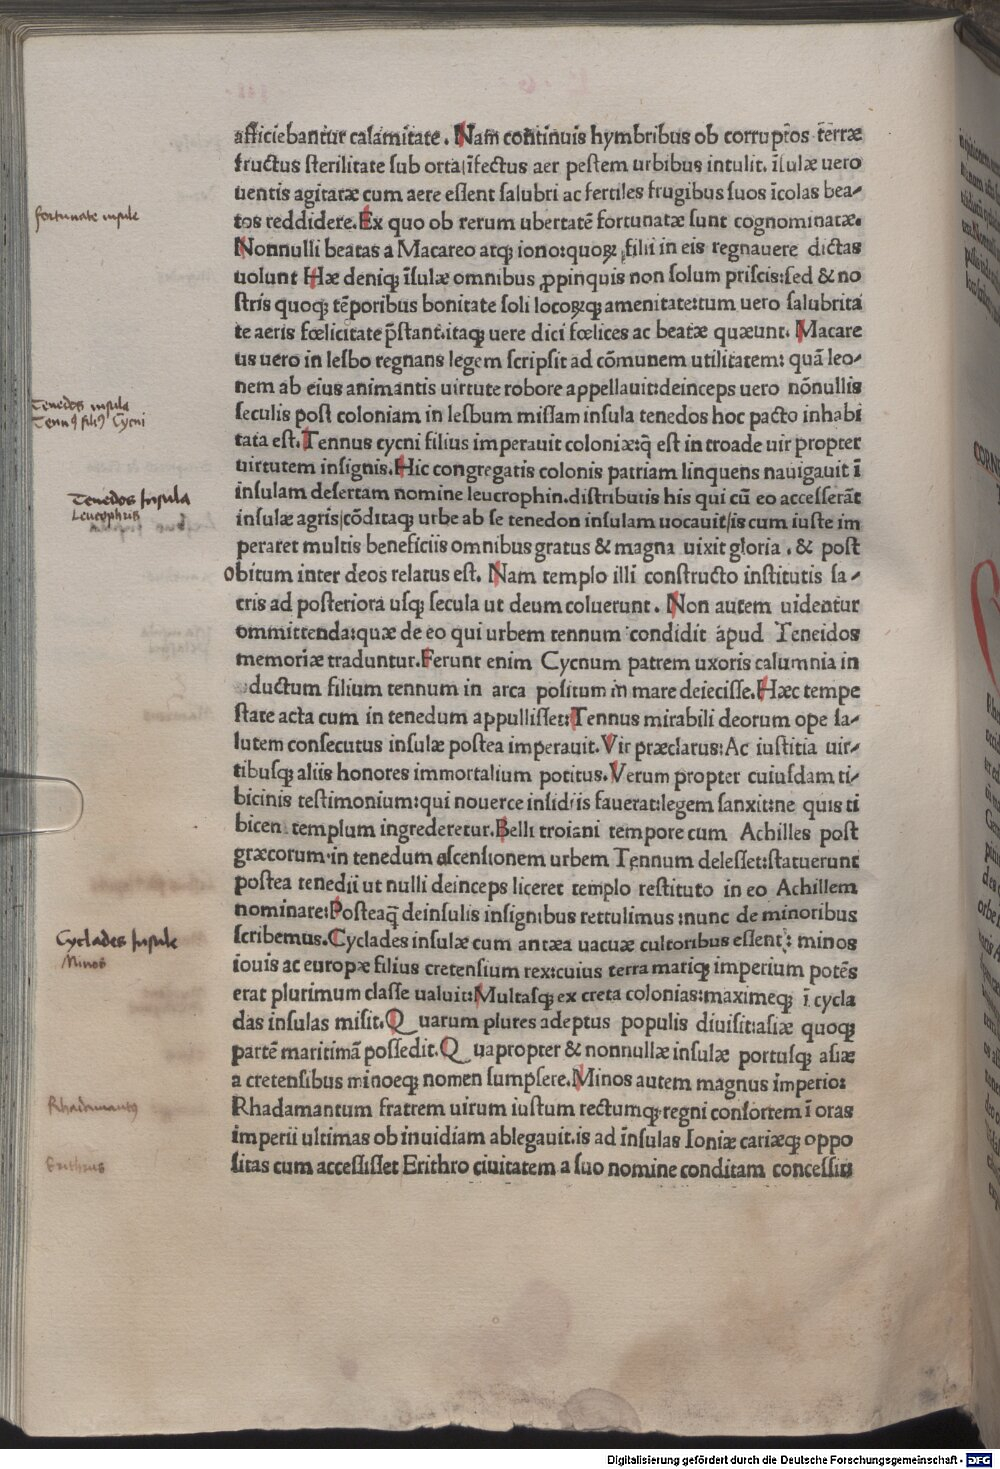 afficiebantur calamitate . Nam continuis hymbribus ob corruptos terræ
fructus sterilitate sub orta|ĩfectus aer pestem urbibus intulit. ĩsulæ uero
uentis agitatæ cum aere essent salubri ac fertiles frugibus suos ĩcolas bea-
tos reddidere. Ex quo ob rerum ubertatẽ fortunatæ sunt cognominatæ.
Nonnulli beatas a Macareo atqꝫ iono:quoꝝ filii in eis regnauere dictas
uolunt Hæ deniqꝫ ĩsulæ omnibus ꝓpinquis non solum priscis:sed & no
stris quoqꝫ tẽporibus bonitate soli locoꝝqꝫ amenitate:tum uero salubrita
te aeris fœlicitate p̃stant.itaqꝫ uere dici fœlices ac beatæ quæunt. Macare
us uero in lesbo regnans legem scripsit ad cõmunem utilitatem: quã leo-
nem ab eius animantis uirtute robore appellauit:deinceps uero nõnullis
seculis post coloniam in lesbum missam insula tenedos hoc pacto inhabi
tata est. Tennus cycni filius imperauit coloniæ:q̃ est in troade uir propter
uirtutem insignis. Hic congregatis colonis patriam linquens nauigauit ĩ
insulam desertam nomine leucrophin.distributis his qui cũ eo accesserãt
insulæ agris|cõditaqꝫ urbe ab se tenedon insulam uocauit|is cum iuste im
peraret multis beneficiis omnibus gratus & magna uixit gloria . & post
obitum inter deos relatus est. Nam templo illi constructo institutis sa-
cris ad posteriora usqꝫ secula ut deum coluerunt . Non autem uidentur
ommittenda:quæ de eo qui urbem tennum condidit apud Teneidos
memoriæ traduntur. Ferunt enim Cycnum patrem uxoris calumnia in
ductum filium tennum in arca positum in mare deiecisse. Hæc tempe
state acta cum in tenedum appullisset: Tennus mirabili deorum ope sa-
lutem consecutus insulæ postea imperauit. Vir præclarus: Ac iustitia uir-
tibusqꝫ aliis honores immortalium potitus. Verum propter cuiusdam ti-
bicinis testimonium:qui nouerce insidiis fauerat:legem sanxit:ne quis ti
bicen templum ingrederetur. Belli troiani tempore cum Achilles post
græcorum in tenedum ascensionem urbem Tennum delesset:statuerunt
postea tenedii ut nulli deinceps liceret templo restituto in eo Achillem
nominare: Posteaq̃ deinsulis insignibus rettulimus :nunc de minoribus
scribemus. Cyclades insulæ cum antæa uacuæ cultoribus essent : minos
iouis ac europæ filius cretensium rex:cuius terra mariqꝫ imperium potẽs
erat plurimum classe ualuit: Multasqꝫ ex creta colonias:maximeqꝫ ĩ cycla
das insulas misit. Quarum plures adeptus populis diuisit:asiæ quoqꝫ
partẽ maritimã possedit. Quapropter & nonnullæ insulæ portusqꝫ asiæ
a cretensibus minoeqꝫ nomen sumpsere. Minos autem magnus imperio:
Rhadamantum fratrem uirum iustum rectumqꝫ regni consortem ĩ oras
imperii ultimas ob inuidiam ablegauit.is ad ĩnsulas Ioniæ cariæqꝫ oppo
sitas cum accessisset Erithro ciuitatem a suo nomine conditam concessit
fortunate insule
Tenedos insula
Tennꝰ filiꝰ Cycni
Tenedos Insula
Leucophris
Cyclades Insule
Minos
Rhadamantꝰ
Erithrus
Digitalisierung gefördert durch die Deutsche Forschungsgemeinschaft - DFG